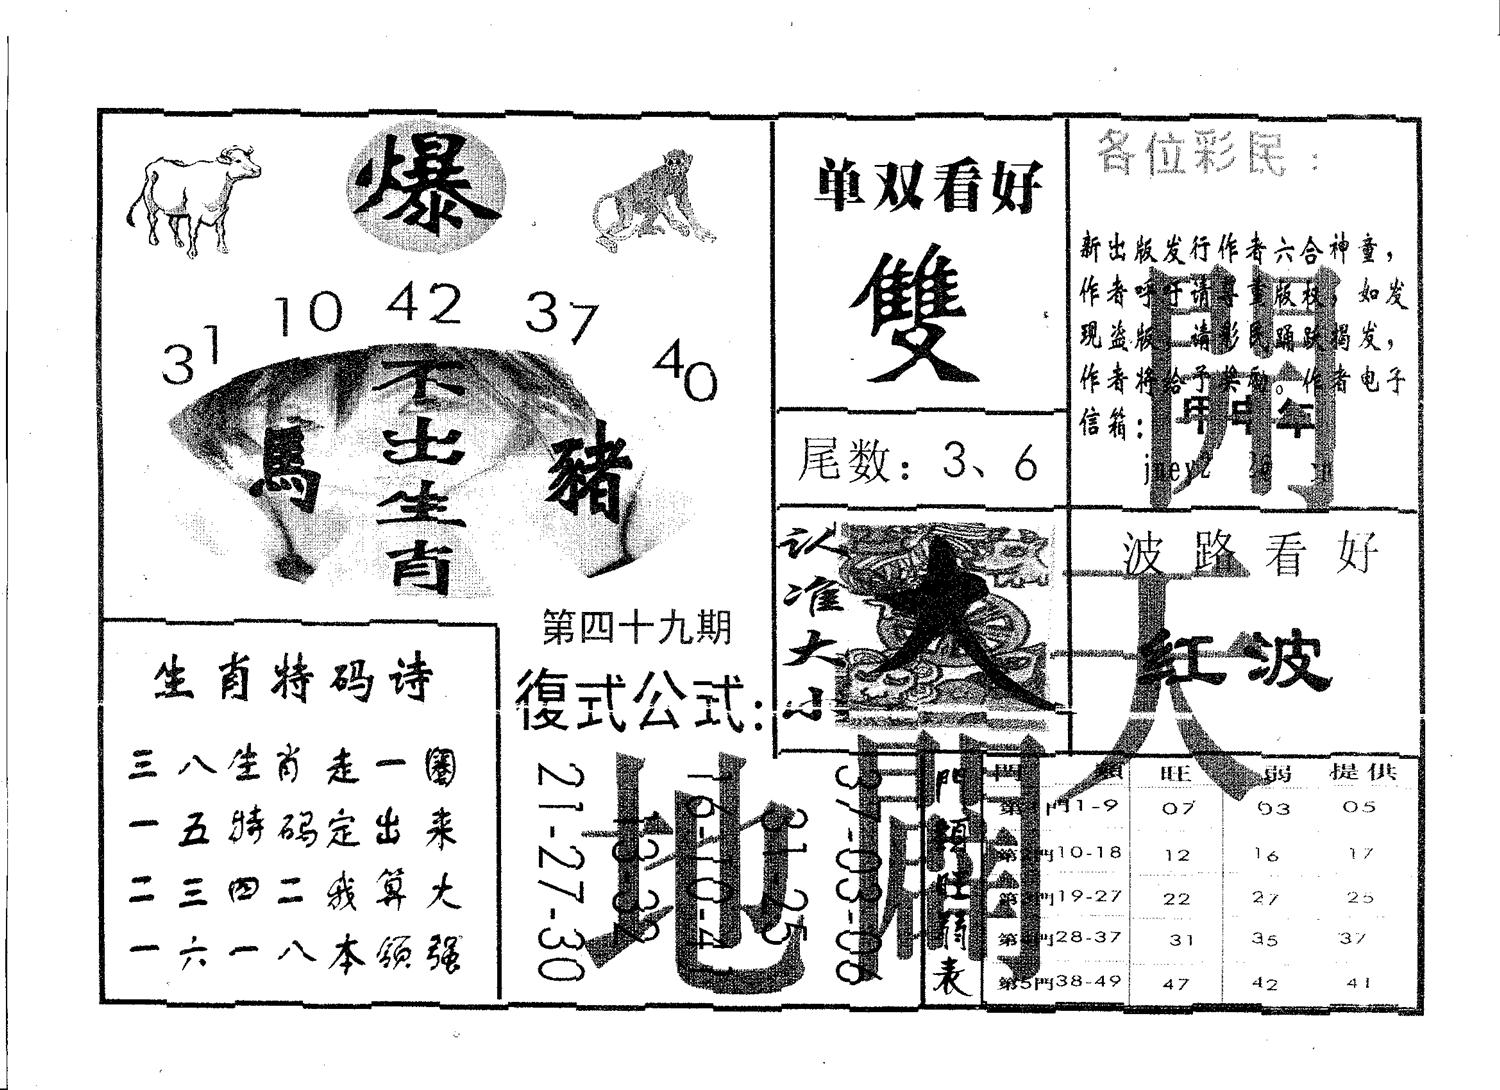 爆
31 10 42 37 40
不出生肖
馬
豬
第四十九期
生肖特码诗
三八生肖走一圈
一五特码定出来
二三四二我算大
一六一八本领强
復式公式:
21-27-30
13-32
16-10-41
31-25
37-03-08
单双看好
雙
尾数: 3、6
认准大小
大
各位彩民:
新出版发行作者六合神童，
作者呼吁请尊重版权，如发
现盗版，请彩民踊跃揭发，
作者将给予奖励。作者电子
信箱:
甲申年
波路看好
红波
天地
門類旺弱表
門類 旺 弱 提供
第1門1-9 07 03 05
第2門10-18 12 16 17
第3門19-27 22 27 25
第4門28-37 31 35 37
第5門38-49 47 42 41